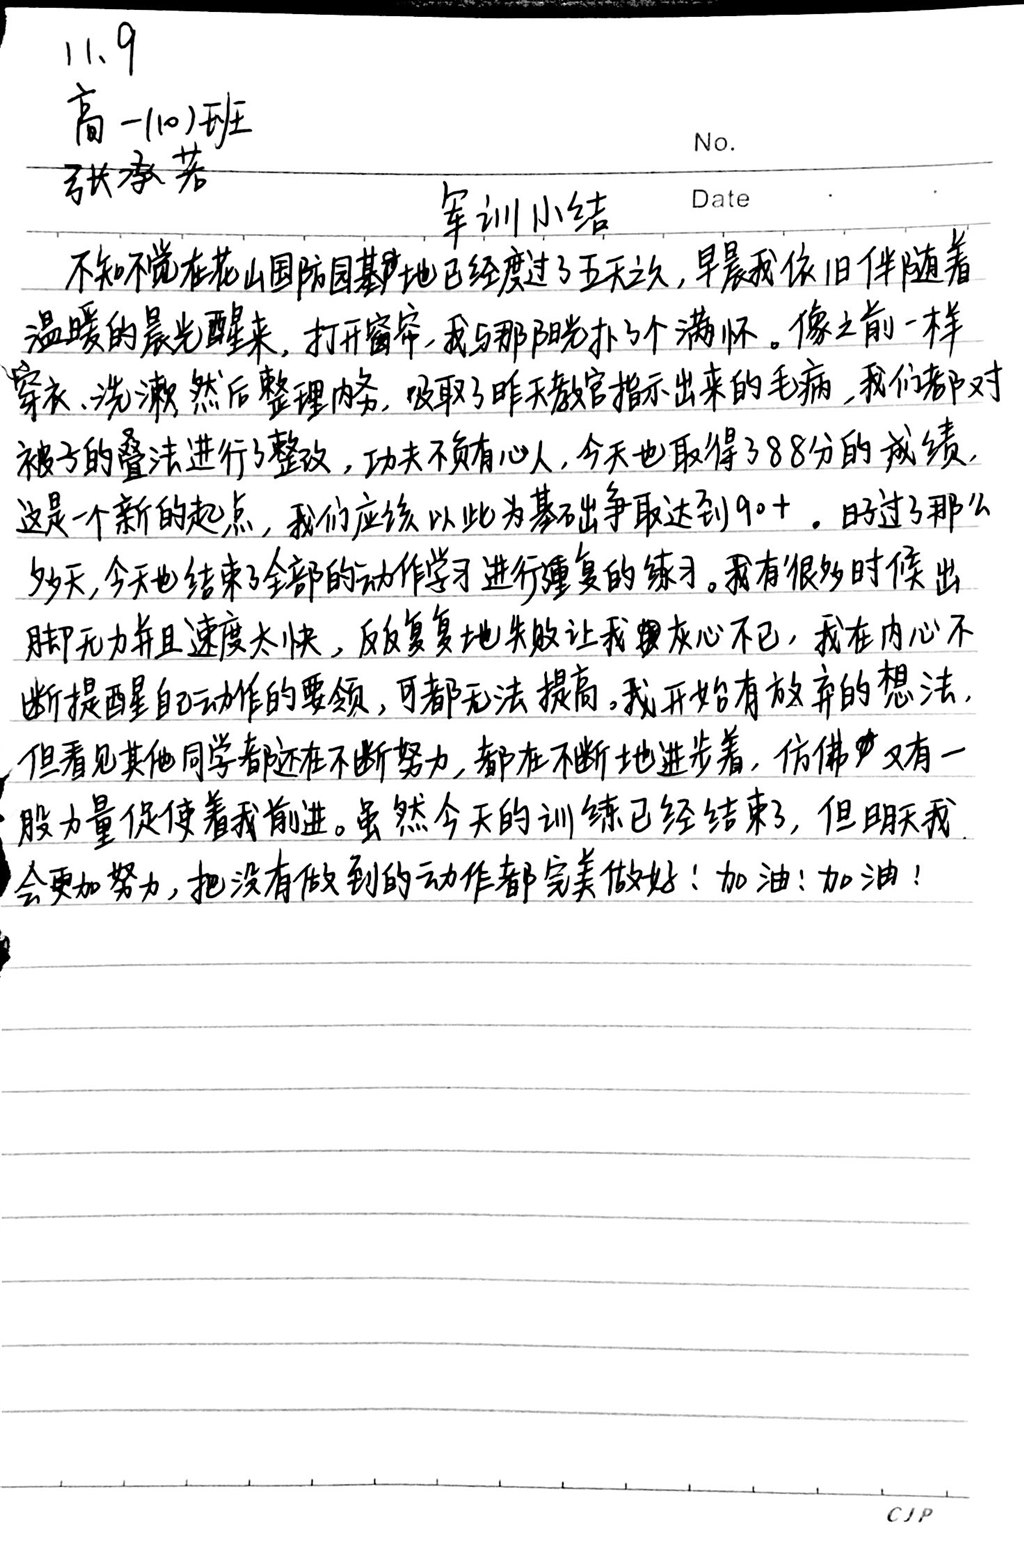 11.9
高一(10)班
张承若
No.
军训小结
Date
不知不觉在花山国防园基地已经度过了五天之久，早晨我依旧伴随着
温暖的晨光醒来，打开窗帘，我与那阳光扑了个满怀。像之前一样
穿衣、洗漱然后整理内务，吸取了昨天教官指示出来的毛病，我们都对
被子的叠法进行了整改，功夫不负有心人，今天也取得了88分的成绩，
这是一个新的起点，我们应该以此为基础争取达到90+。时过了那么
多天，今天也结束了全部的动作学习进行重复的练习。我有很多时候出
脚无力并且速度太快，反反复复地失败让我灰心不已，我在内心不
断提醒自己动作的要领，可都无法提高。我开始有放弃的想法，
但看见其他同学都还在不断努力，都在不断地进步着，仿佛又有一
股力量促使着我前进。虽然今天的训练已经结束了，但明天我
会更加努力，把没有做到的动作都完美做好！加油！加油！
CJP